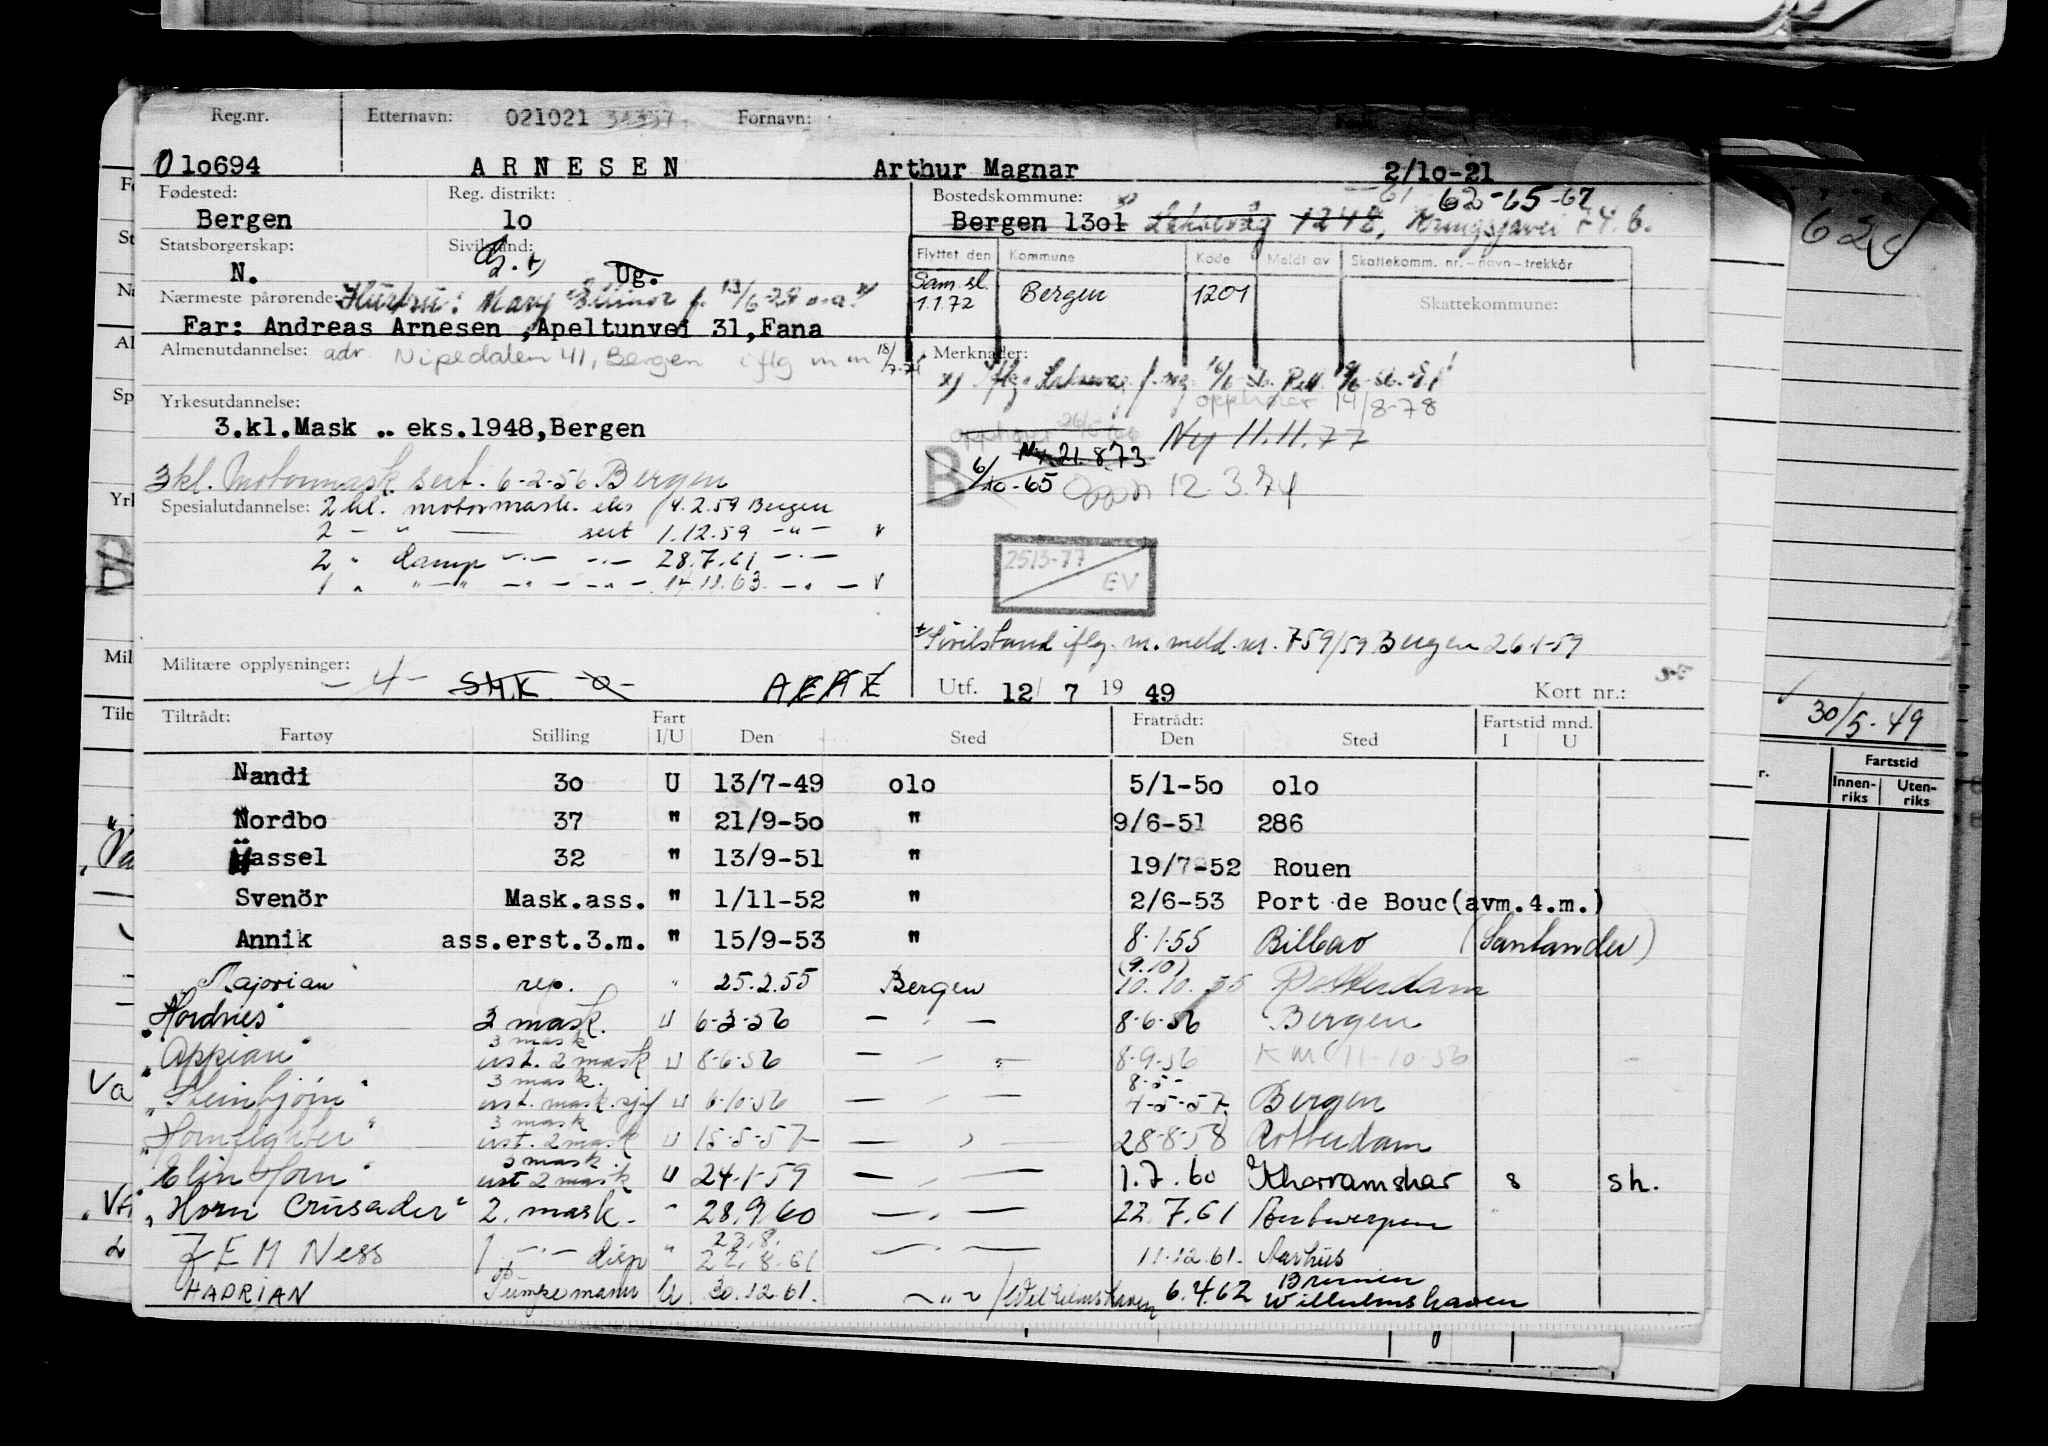 Reg.nr. Etternavn: 021021 34357 Fornavn:
010694 ARNESEN Arthur Magnar 2/10-21
Fødested: Reg. distrikt: Bostedskommune: 61 62-65-67
Bergen 10 Bergen 1301 Laksevåg 1248,
Statsborgerskap: Sivilstand:
N. G. Ug.
Flyttet den Kommune Kode Meldt av Skattekomm. nr.-navn-trekkår
Sam.sl. 1.1.72 Bergen 1201 Skattekommune:
Nærmeste pårørende: Hustru: Mary Ellinor f. 13/6-29
Far: Andreas Arnesen ,Apeltunvei 31,Fana
Almenutdannelse: adr. Nipedalen 41, Bergen iflg m m 18/7-71
Merknader:
opphører 14/8-78
Yrkesutdannelse:
3.kl.Mask .. eks.1948,Bergen
Ny 11.11.77
Ny 21.8.73
B 6/10-65 Opph 12.3.74
3kl. Motormask. sert. 6-2-56 Bergen
Spesialutdannelse: 2 kl. motormask. eks 14.2.59 Bergen
2 - " - sert 1.12.59 -"- "
2 " damp -"- -"- 28.7.61 -"-
1 " "-" -"- -"- 14.11.63. -"- "
2513-77
EV
Sivilstand iflg. m. meld. nr. 759/59 Bergen 26-1-59
Militære opplysninger: -4- S.M.K. -o- AEAE
Utf. 12/ 7 19 49 Kort nr.:
Tiltrådt: Fart Fratrådt: Fartstid mnd.
Fartøy Stilling I/U Den Sted Den Sted I U
Nandi 30 U 13/7-49 olo 5/1-50 olo
Nordbo 37 " 21/9-50 " 9/6-51 286
Hassel 32 " 13/9-51 " 19/7-52 Rouen
Svenör Mask.ass. " 1/11-52 " 2/6-53 Port de Bouc(avm.4.m.)
Annik ass.erst.3.m. " 15/9-53 " 8-1-55 Bilbao (Santander)
"Majorian" rep. " 25.2.55 Bergen (9.10) 10.10.55 Rotterdam
"Hordnes" 3 mask. U 6-3-56 - " - 8-6-56 Bergen
3 mask
"Appian" erst. 2 mask U 8-6-56 - " - 8-9-56 KM 11-10-56
3 mask. 8-5-
"Steinbjörn" erst. mask. U 6-10-56 - " - 4-5-57 Bergen
3 mask
"Hornfighter" erst. 2 mask U 15-5-57 - " - 28-8-58 Rotterdam
3 mask
"Elin Horn" erst 2 mask U 24-1-59 - " - 1.7.60 Khorramshar 8 sh.
"Horn Crusader" 2. mask. - 28.9.60 - " - 22.7.61 Antwerpen
23.8.
FEM Ness 1 -"- disp " 22.8.61 - " - 11.12.61. Aarhus
HADRIAN Pumpemann U 30.12.61. -"- /Wilhelmshaven 6.4.62 Bremen Wilhelmshaven
62
30/5-49
Fartstid
Innen-riks Uten-riks